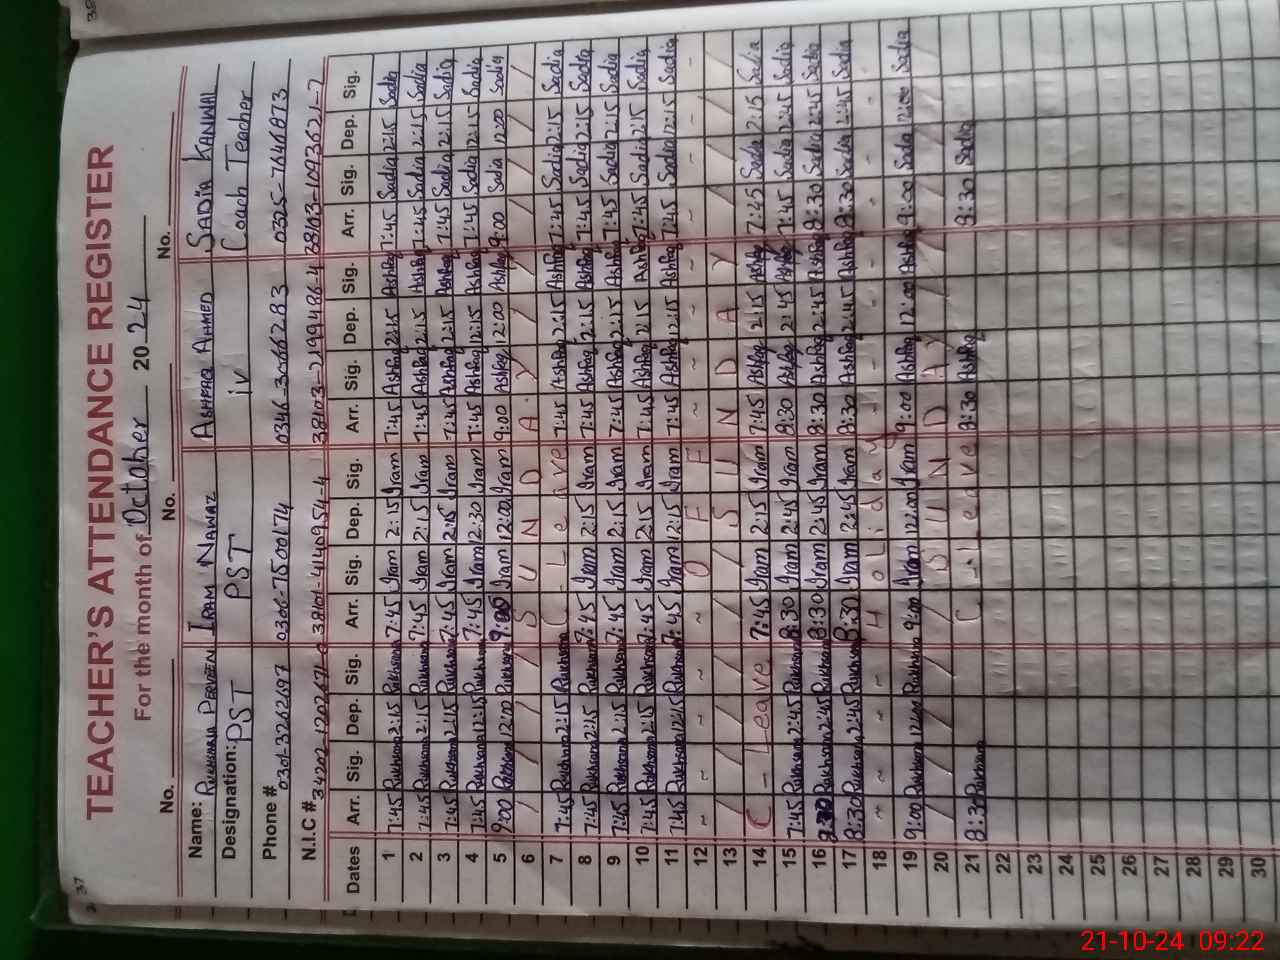 TEACHER'S ATTENDANCE REGISTER
For the month of October 2024
No. No. No.
Name: RUKHSANA PERVEEN IRAM NAWAZ ASHFAQ AHMED SADIA KANWAL
Designation: PST PST iv Coach Teacher
Phone # 0306-7500174 0325-7646873
N.I.C #
Dates Arr. Sig. Dep. Sig. Arr. Sig. Dep. Sig. Arr. Sig. Dep. Sig. Arr. Sig. Dep. Sig.
1 7:45 Rukhsana 2:15 Rukhsana 7:45 Iram 2:15 Iram 7:45 Ashfaq 2:15 Ashfaq 7:45 Sadia 2:15 Sadia
2 7:45 Rukhsana 2:15 Rukhsana 7:45 Iram 2:15 Iram 7:45 Ashfaq 2:15 Ashfaq 7:45 Sadia 2:15 Sadia
3 7:45 Rukhsana 2:15 Rukhsana 7:45 Iram 2:15 Iram 7:45 Ashfaq 2:15 Ashfaq 7:45 Sadia 2:15 Sadia
4 7:45 Rukhsana 12:15 Rukhsana 7:45 Iram 12:30 Iram 7:45 Ashfaq 12:15 Ashfaq 7:45 Sadia 12:15 Sadia
5 9:00 Rukhsana 12:00 Rukhsana 9:00 Iram 12:00 Iram 9:00 Ashfaq 12:00 Ashfaq 9:00 Sadia 12:00 Sadia
6 SUNDAY
7 7:45 Rukhsana 2:15 Rukhsana C-Leave 7:45 Ashfaq 2:15 Ashfaq 7:45 Sadia 2:15 Sadia
8 7:45 Rukhsana 2:15 Rukhsana 7:45 Iram 2:15 Iram 7:45 Ashfaq 2:15 Ashfaq 7:45 Sadia 2:15 Sadia
9 7:45 Rukhsana 2:15 Rukhsana 7:45 Iram 2:15 Iram 7:45 Ashfaq 2:15 Ashfaq 7:45 Sadia 2:15 Sadia
10 7:45 Rukhsana 2:15 Rukhsana 7:45 Iram 2:15 Iram 7:45 Ashfaq 2:15 Ashfaq 7:45 Sadia 2:15 Sadia
11 7:45 Rukhsana 12:15 Rukhsana 7:45 Iram 12:15 Iram 7:45 Ashfaq 12:15 Ashfaq 7:45 Sadia 12:15 Sadia
12 OFF
13 SUNDAY
14 C-Leave 7:45 Iram 2:15 Iram 7:45 Ashfaq 2:15 Ashfaq 7:45 Sadia 2:15 Sadia
15 7:45 Rukhsana 2:45 Rukhsana 8:30 Iram 2:45 Iram 8:30 Ashfaq 2:45 Ashfaq 7:45 Sadia 2:45 Sadia
16 8:30 Rukhsana 2:45 Rukhsana 8:30 Iram 2:45 Iram 8:30 Ashfaq 2:45 Ashfaq 8:30 Sadia 2:45 Sadia
17 8:30 Rukhsana 2:45 Rukhsana 8:30 Iram 2:45 Iram 8:30 Ashfaq 2:45 Ashfaq 8:30 Sadia 2:45 Sadia
18 Holiday
19 9:00 Rukhsana 12:00 Rukhsana 9:00 Iram 12:00 Iram 9:00 Ashfaq 12:00 Ashfaq 9:00 Sadia 12:00 Sadia
20 SUNDAY
21 8:30 Rukhsana C-Leave 8:30 Ashfaq 8:30 Sadia
22
23
24
25
26
27
28
29
30
21-10-24 09:22